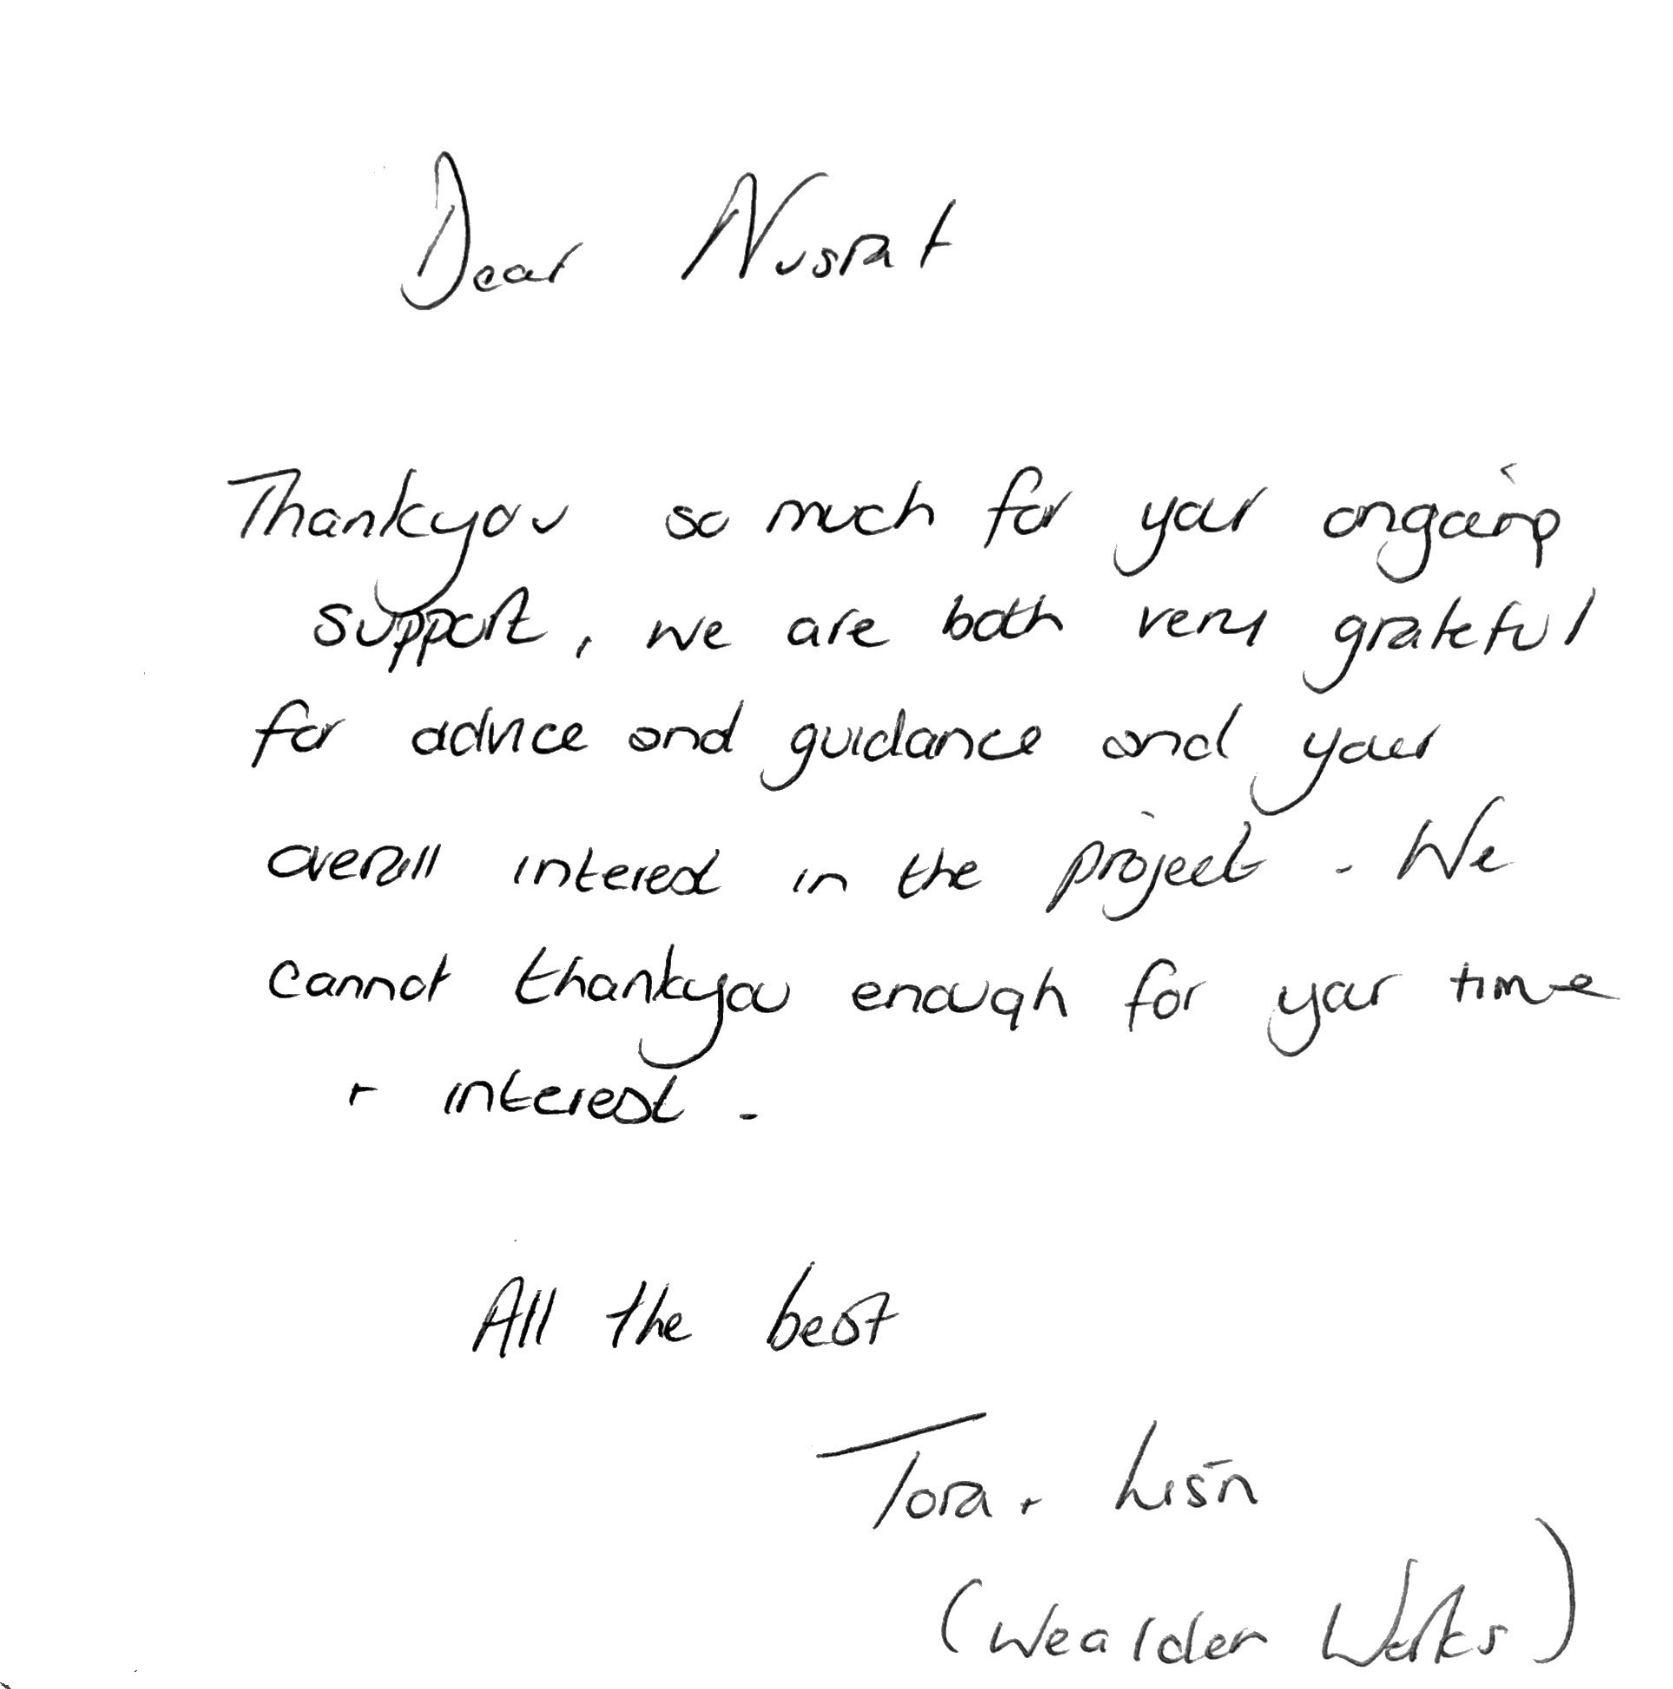 Dear Nusrat
Thankyou so much for your ongoing
support, we are both very grateful
for advice and guidance and your
overall interest in the project. We
cannot thankyou enough for your time
+ interest.
All the best
Tora +
(Wealden Works)